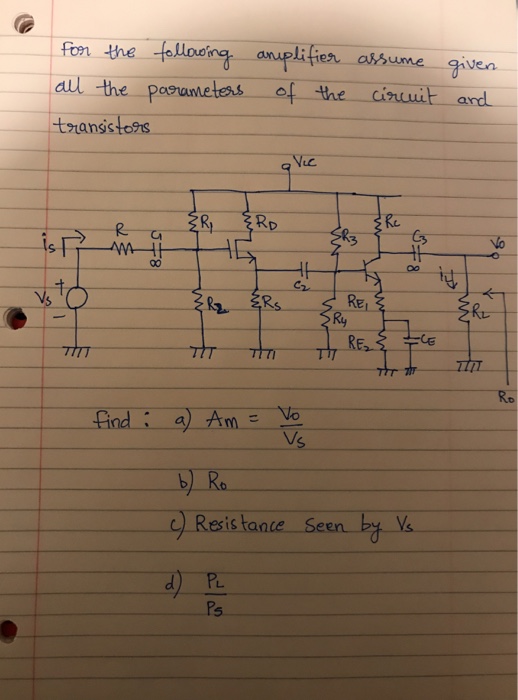 for the following amplifier assume given
all the parameters of the circuit and
transistors
Vcc
R1
RD
R3
RC
R
C1
is
∞
C2
C3
∞
Vo
Vs
+
-
R2
Rs
R4
RE1
RE2
CE
iL
RL
Ro
find : a) Am = Vo
Vs
b) Ro
c) Resistance seen by Vs
d) PL
Ps